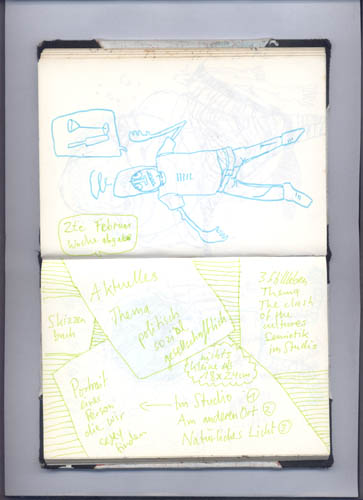 2te Februar
Woche abgabe
Aktuelles
Thema
politisch
sozial
gesellschaftlich
Skizzen
buch
Thema
The clash
of the
cultures
im Studio
nichts
kleiner als
Portrait
einer
Person
die wir
sexy
finden
← Im Studio ①
An anderen Ort ②
Natürliches Licht ③